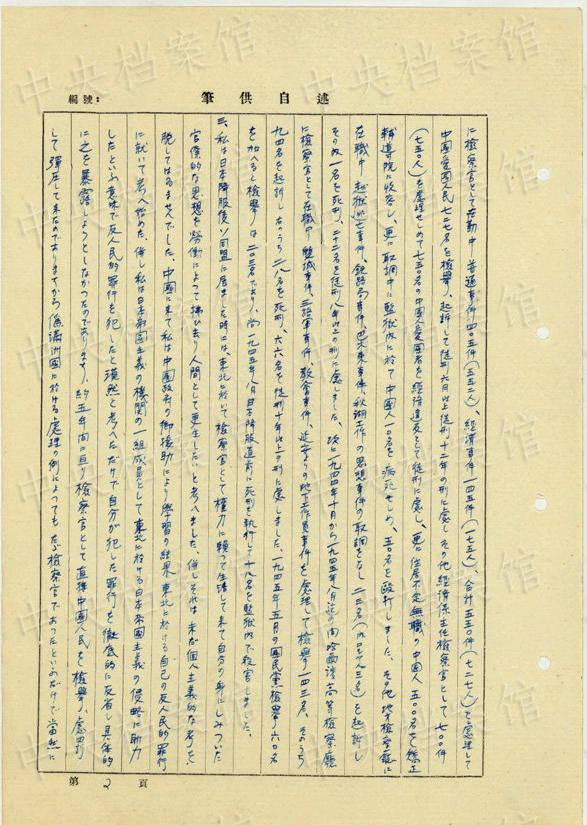 中央档案馆
編號：
筆供自述
に檢察官として在勤中、普通事件四〇五件（五五二人）、経済事件一四五件（一七五人）、合計五五〇件（七二七人）を處理して
中國愛國人民七二七名を檢擧し、起訴して徒刑六月以上徒刑十二年の刑に處し、その他経済係主任檢察官として七〇〇件
（七五〇人）を處理せしめて七五〇名の中國人愛國者を経済違反として徒刑に處し、更に住居不定無職の中國人五〇〇名を矯正
輔導院に收容し、更に取調中に監獄内に於て中國人一〇名を病死せしめ、五〇名を毆打しました。その他地方檢察廳に
在職中
事件、鉄路局事件、巴木東事件、
工作の思想事件の取調をなし
を起訴し
その内一名を死刑、二十二名を徒刑八年以上の刑に處しました。次に一九四四年十月から一九四五年八月迄の間哈爾濱高等檢察廳
に檢察官として在職中
事件、三路軍事件、教會事件、延安よりの地下工作員事件を處理して檢擧一四三名、そのうち
九四名を起訴し、そのうち二八名を死刑、六六名を徒刑十年以上の刑に處しました。一九四五年五月の國民党檢擧六〇名
を加へると檢擧は二〇三名であり、尚一九四五年八月日本降服直前に死刑を執行して十九名を監獄内で殺害しました。
三、私は日本降服後ソ同盟に居ました時には、東北に於いて檢察官として權力に頼って生活して来て自分の身にしみついた
官僚的な思想を労働によって拂ひ去り、人間として更生したいと考へました。併しそれは未だ個人主義的な考を
脱してはゐませんでした。中國に来て私は中國政府の御援助により學習の結果、東北に於ける自己の反人民的罪行
に就いて考へ始めた。併し私は日本帝國主義の機関の一組成員として東北に於ける日本帝國主義の侵略に助力
したといふ意味で反人民的罪行を犯したと漠然と考へただけで自分が犯した罪行を徹底的に反省し具体的
に之を暴露しようとしなかったのであります。約五年間に亘り檢察官として直接中國人民を檢擧し、處罰
して彈圧して来たのでありますから偽滿洲國に於ける處理の例によっても、たゞ檢察官であったといふだけで當然に
第 2 頁